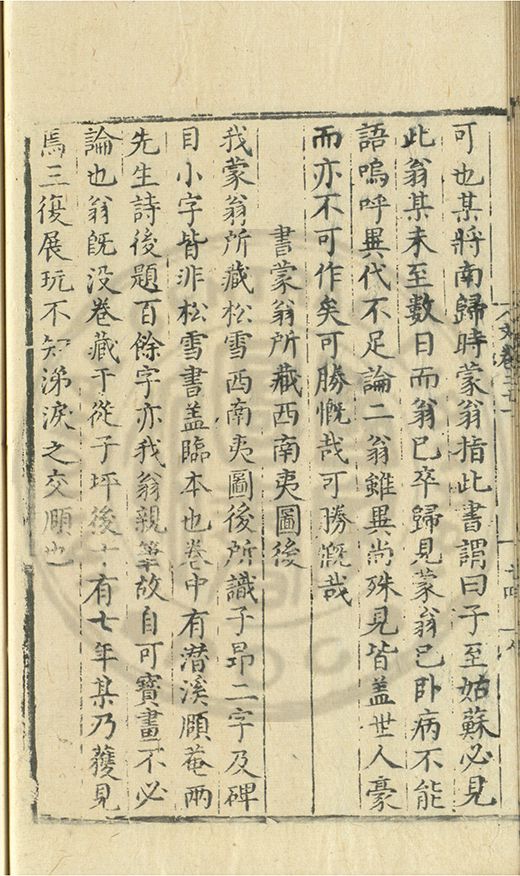 可也某將南歸時蒙翁指此書謂曰子至姑蘇必見
此翁某未至數日而翁已卒歸見蒙翁已卧病不能
語嗚呼異代不足論二翁雖異尚殊見皆盖世人豪
而亦不可作矣可勝慨哉可勝慨哉
書蒙翁所藏西南夷圖後
我蒙翁所藏松雪西南夷圖後所識子昂二字及碑
目小字皆非松雪書盖臨本也卷中有潜溪頤菴兩
先生詩後題百餘字亦我翁親筆故自可寶畫不必
論也翁旣没卷藏于從子坪後十有七年某乃獲見
焉三復展玩不知涕淚之交頤也